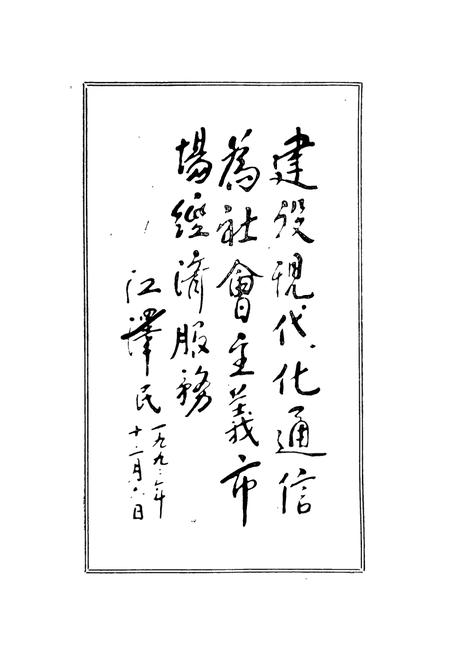 建设现代化通信
為社會主義市
場經濟服務
江澤民
一九九二年
十二月六日